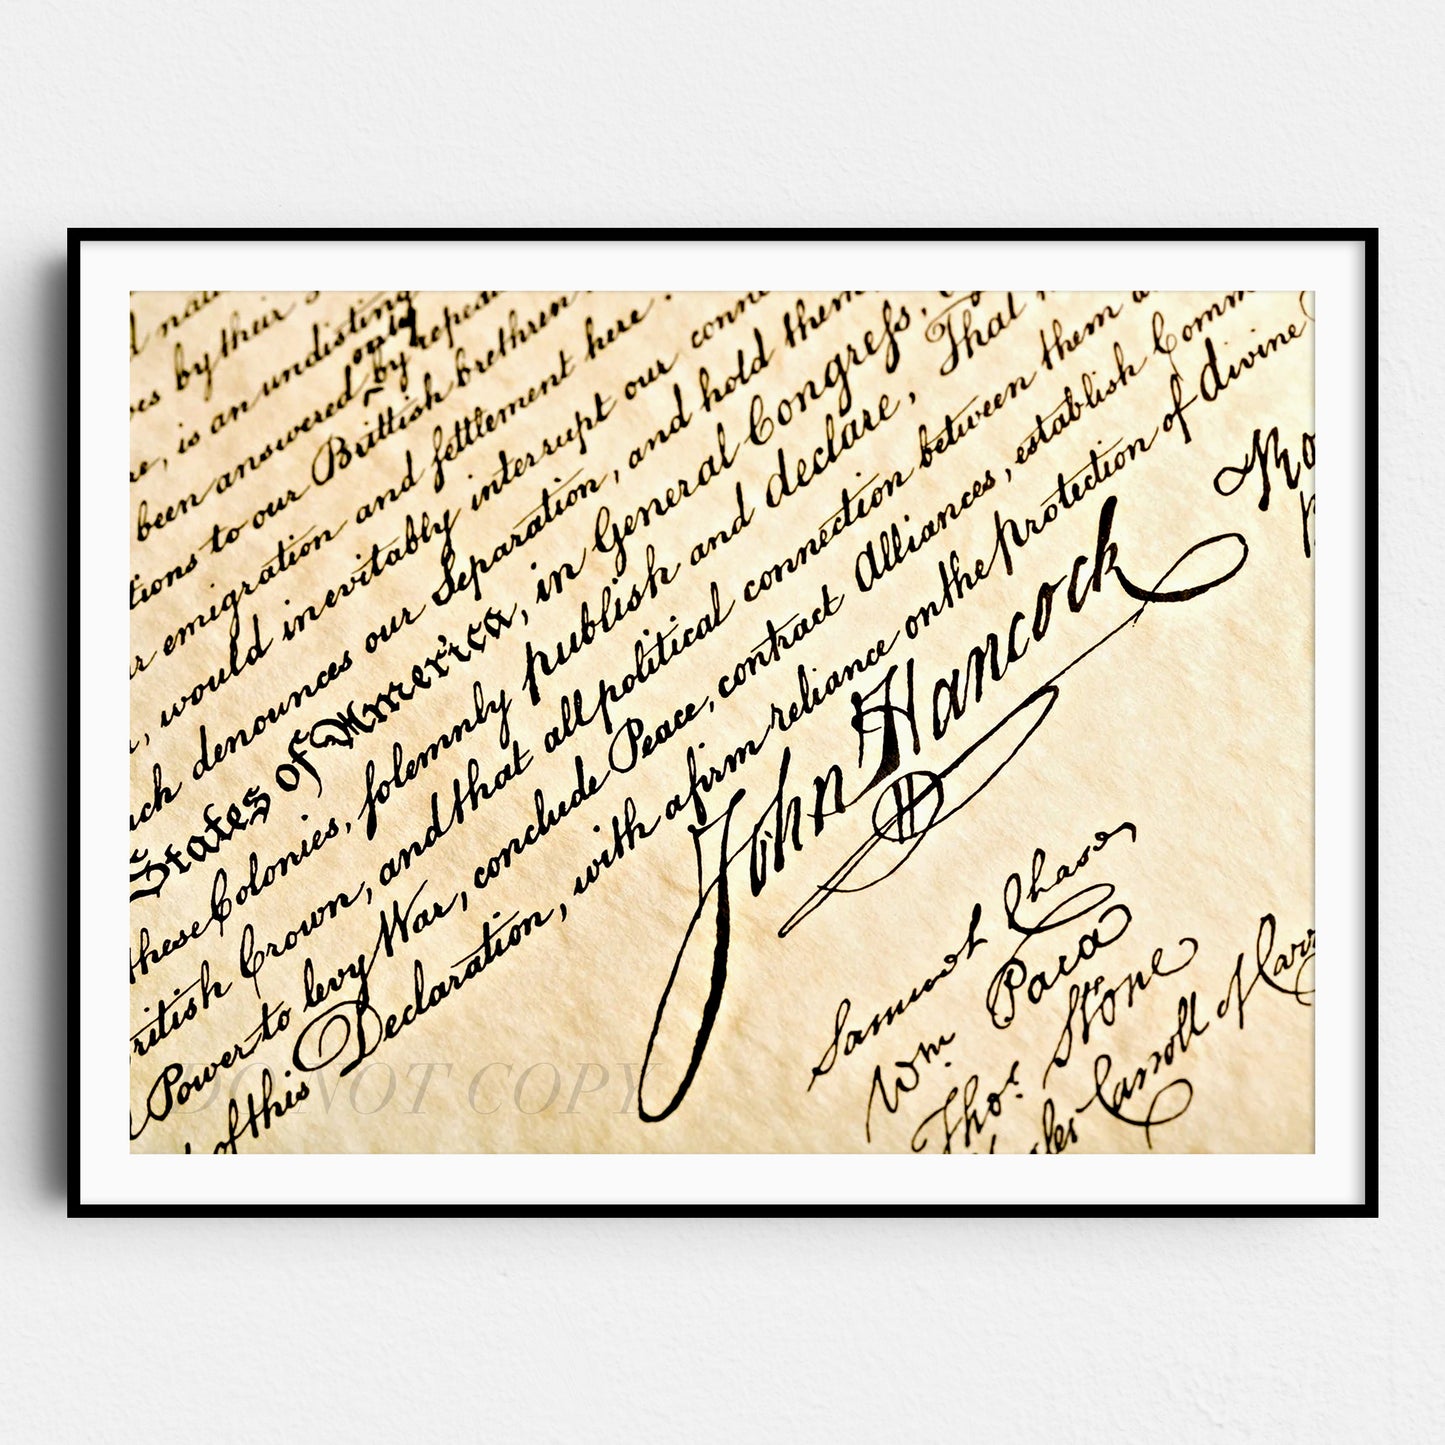 by their
is an undisting
been answered only by repea
tions to our Brittish brethren
emigration and settlement here.
would inevitably interrupt our conn
denounces our Separation, and hold them
States of America, in General Congress,
these Colonies, solemnly publish and declare, That
British Crown, and that all political connection between them
Power to levy War, conclude Peace, contract Alliances, establish Comm
of this Declaration, with a firm reliance on the protection of divine
John Hancock
Samuel Chase
Wm Paca
Thos. Stone
Carroll of Carr
DO NOT COPY